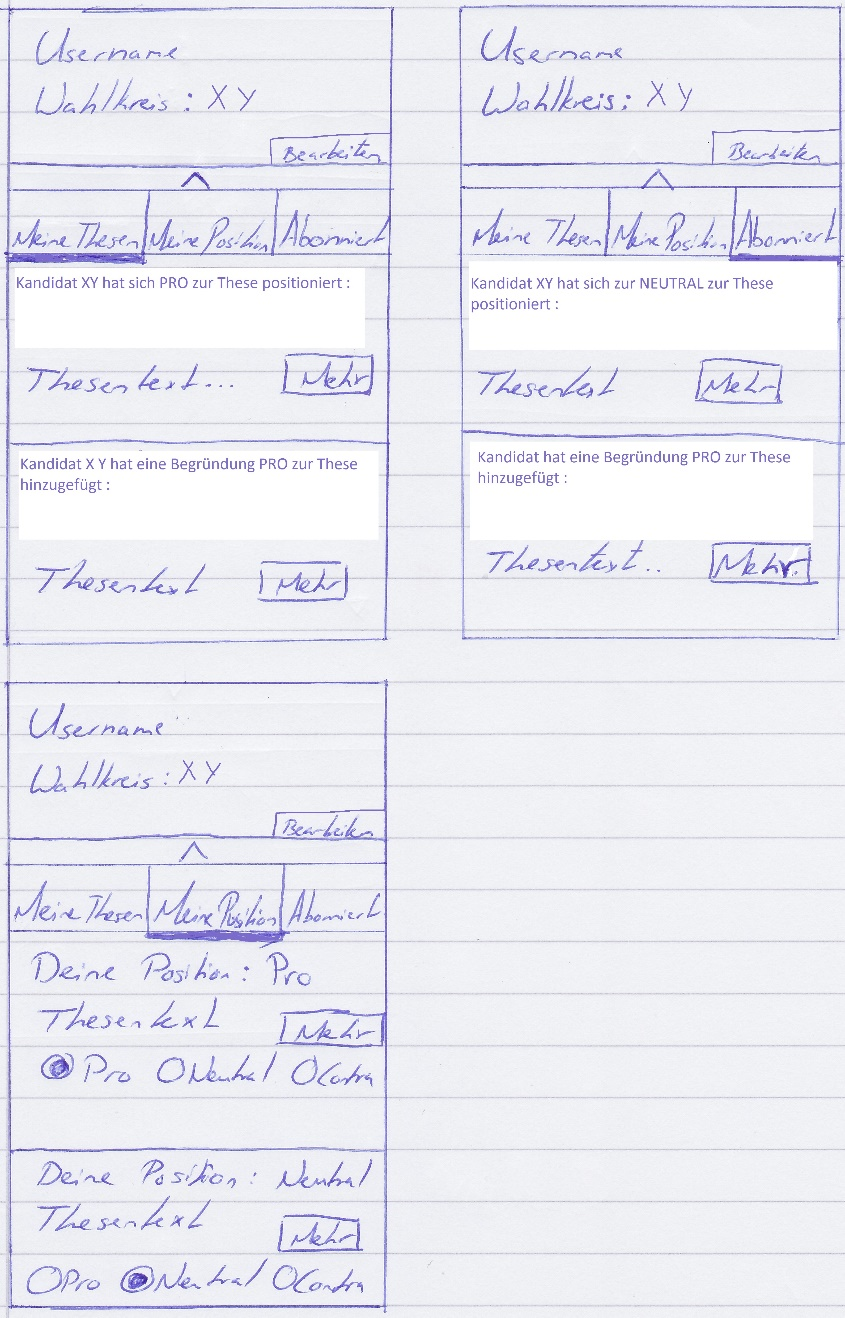 Username
Wahlkreis : XY
Bearbeiten
Meine Thesen Meine Position Abonniert
Kandidat XY hat sich PRO zur These positioniert :
Thesentext... Mehr
Kandidat X Y hat eine Begründung PRO zur These
hinzugefügt :
Thesentext Mehr
Username
Wahlkreis: XY
Bearbeiten
Meine Thesen Meine Position Abonniert
Kandidat XY hat sich zur NEUTRAL zur These
positioniert :
Thesentext Mehr
Kandidat hat eine Begründung PRO zur These
hinzugefügt :
Thesentext.. Mehr
Username
Wahlkreis : XY
Bearbeiten
Meine Thesen Meine Position Abonniert
Deine Position : Pro
Thesentext Mehr
Pro Neutral Contra
Deine Position : Neutral
Thesentext Mehr
Pro Neutral Contra